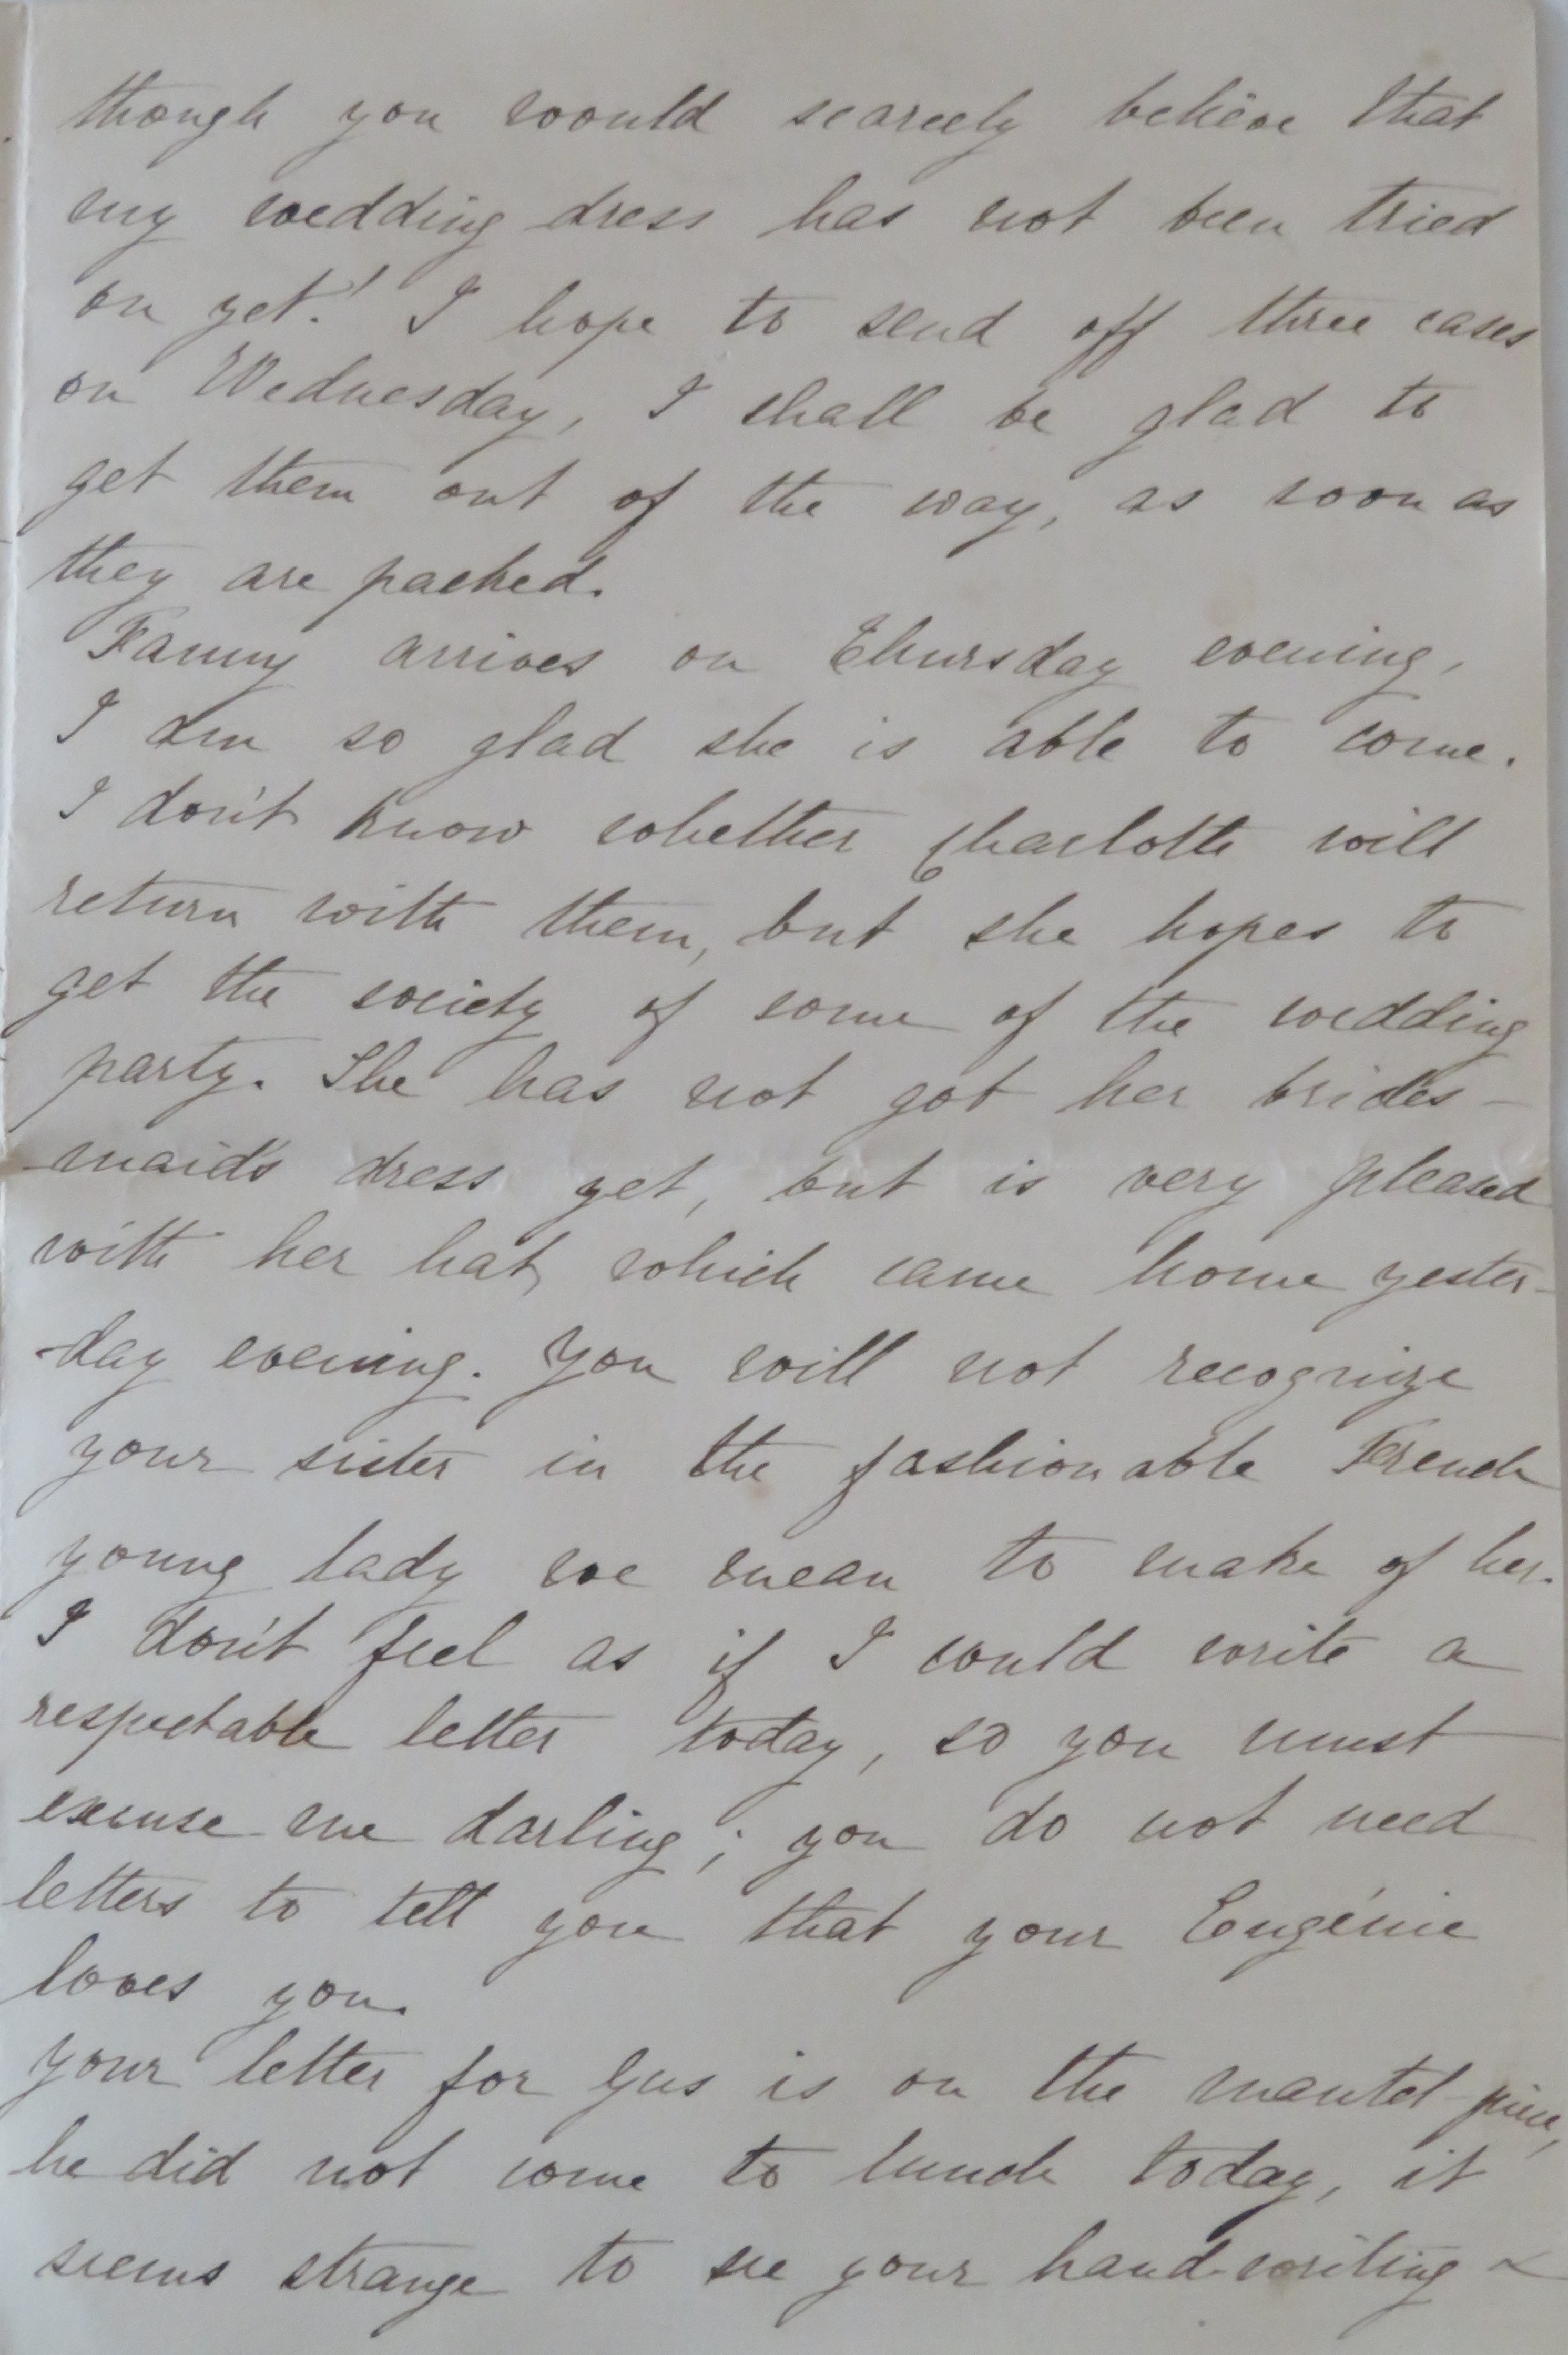 though you would scarcely believe that
my wedding dress has not been tried
on yet! I hope to send off three cases
on Wednesday, I shall be glad to
get them out of the way, as soon as
they are packed.
Fanny arrives on Thursday evening,
I am so glad she is able to come.
I don't know whether Charlotte will
return with them, but she hopes to
get the society of some of the wedding
party. She has not got her brides-
-maid's dress yet, but is very pleased
with her hat, which came home yester-
-day evening. You will not recognize
your sister in the fashionable French
young lady we mean to make of her.
I don't feel as if I could write a
respectable letter today, so you must
excuse me darling; you do not need
letters to tell you that your Eugénie
loves you.
Your letter for Gus is on the mantel-piece,
he did not come to lunch today, it
seems strange to see your hand-writing &